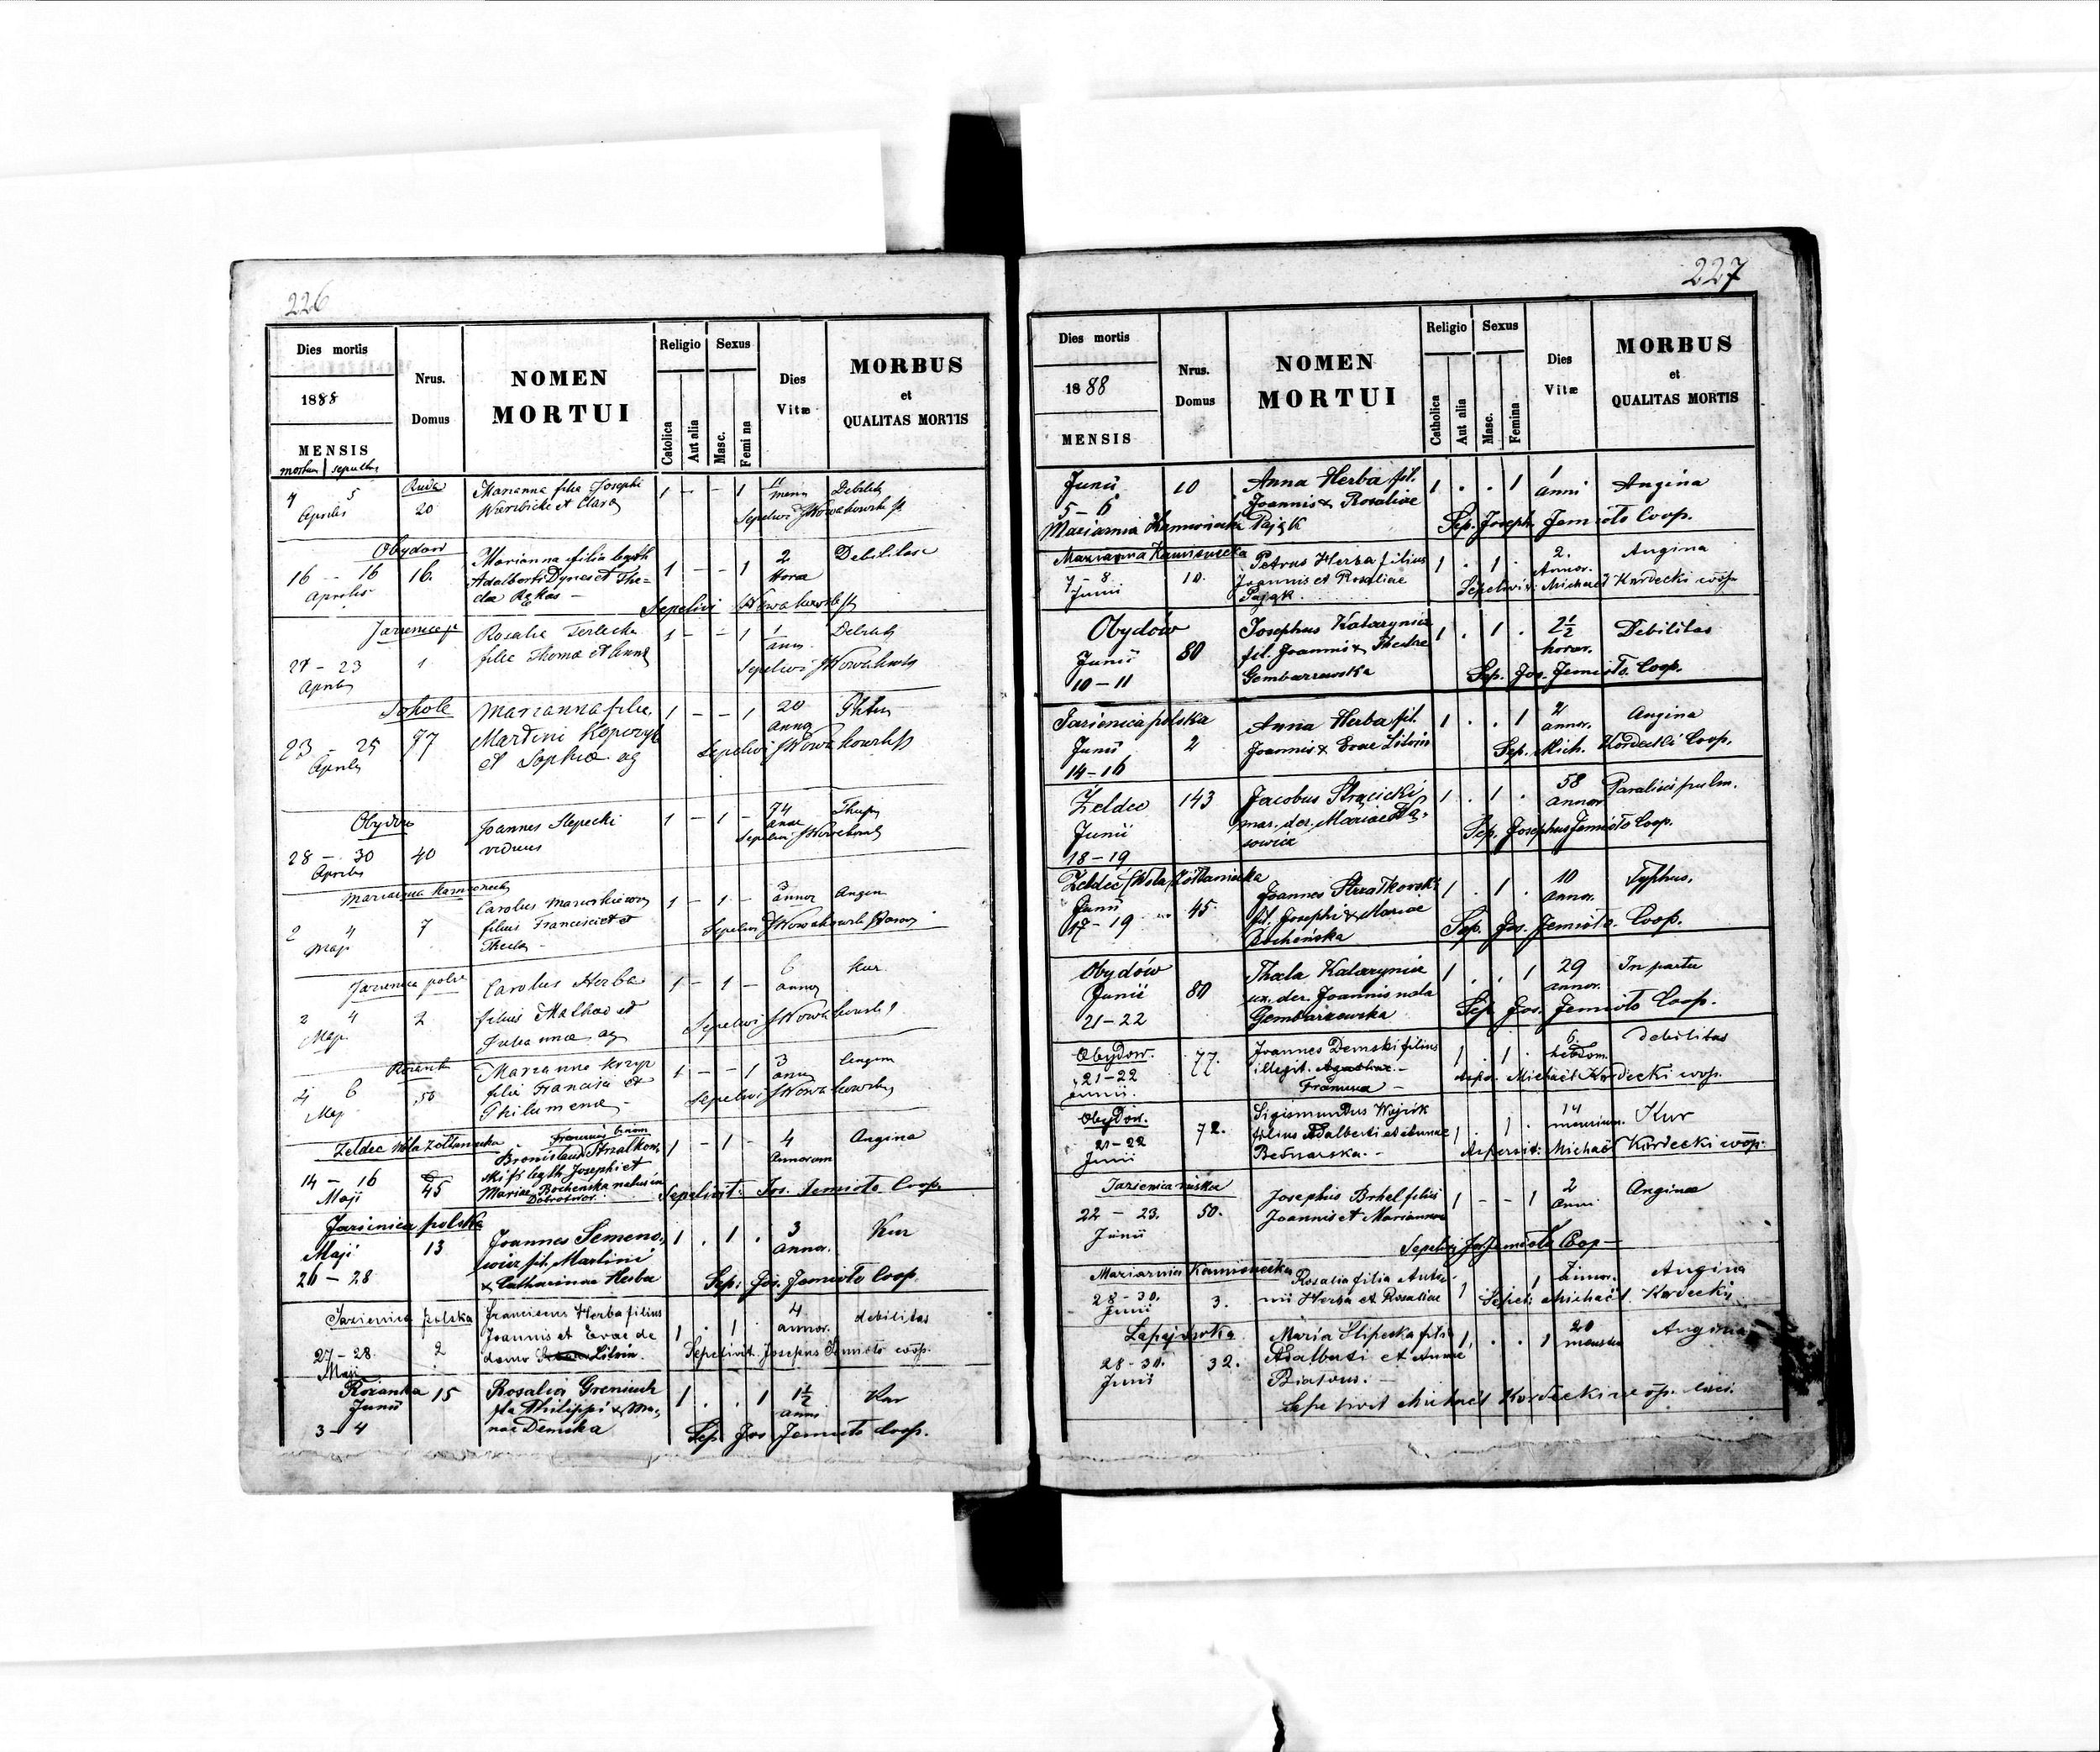 226
Dies mortis
1888
MENSIS
mortuus | sepultus
Nrus.
Domus
NOMEN
MORTUI
Religio
Catolica
Aut alia
Sexus
Masc.
Femi na
Dies
Vitæ
MORBUS
et
QUALITAS MORTIS
Ruda
4 5
Aprilis
20
Marianna filia Josephi
et Clara
1 - - 1
11
Debilit
Sepelivi JNowakowski
Obydow
16 - 16
Aprilis
16.
Marianna filia legith
Adalberti Dynes et The=
clae Rękas -
1 - - 1
2
Horae
Debilitas
Sepelivi Nowakowski
Jazienica p
21 - 23
Aprilis
1
Rosalia Terlecka
filia Thoma et Anna
1 - - 1
1
Debilit
Sepelivi JNowakowski
Sokole
23 - 25
Aprilis
77
Marianna filia
Martini Kopczyk
et Sophia ag
1 - - 1
20
Annor
Sepelivi JNowakowski
Obydow
28 - 30
Aprilis
40
Joannes Slepecki
viduus
1 - 1 -
74
Sepelivi JNowakowski
Marianna Kamionecka
2 4
Maji
7
Carolus
filius Francisci et
Thecla -
1 - 1 -
3
annor
Angina
Sepelivi JNowakowski
Jazienica pols
2 4
Maji
2
Carolus Herba
filius Mathao et
Julianna ag
1 - 1 -
6
annor
Kur
Sepelivi JNowakowski
Rozanka
4 6
Maj
50
Marianna Krzyp
filia Francisci et
Philumena -
1 - - 1
3
Angina
Sepelivi JNowakowski
Zeldec Wola Zoltaniecka
14 - 16
Maji
45
Bronislaus Strzalkow
ski fs legth Josephi et
Mariae Bochenska natus in
Dobrotwor.
1 - 1 -
4
Annorum
Angina
Sepelivit: Jos. Jemioto Coop.
Jazienica polska
Maji
26 - 28
13
Joannes Semeno-
wicz fil. Martini
& Catharinae Herba
1 . 1 .
3
annor.
Kur
Sep: Jos. Jemioto Coop.
Jazienica polska
27 - 28.
Maji
2
Franciscus Herba filius
Joannis et Evae de
domo Litwin.
1 . 1 .
4
annor.
debilitas
Sepelivit Josepus Jemioto coop.
Rożanka
Junii
3 - 4
15
Rosalia Greniuch
fla Philippi & An-
nae Demska
1 . . 1
1½
anni
Kur
Sep. Jos Jemioto Coop.
227
Dies mortis
1888
MENSIS
Nrus.
Domus
NOMEN
MORTUI
Religio
Catholica
Aut alia
Sexus
Masc.
Femina
Dies
Vitæ
MORBUS
et
QUALITAS MORTIS
Junii
5 - 6
Mariamia Kamionecka
10
Anna Herba fil.
Joannis & Rosaliae
Pająk
1 . . 1
1
anni
Angina
Sep. Joseph. Jemioto Coop.
Marianna Kamionecka
7 - 8
Junii
10.
Petrus Herba filius
Joannis et Rosaliae
Pająk.
1 . 1 .
2.
Annor.
Angina
Sepelivit: Michael Kordecki coop
Obydów
Junii
10 - 11
80
Josephus Katarynicz
fil. Joannis & Theclae
Gembarzewska
1 . 1 .
2½
horar.
Debilitas
Sep. Jos. Jemioto. Coop.
Jazienica polska
Junii
14 - 16
2
Anna Herba fil.
Joannis & Evae Litwin
1 . . 1
2
annor.
Angina
Sep. Mich. Kordecki Coop.
Żeldec
Junii
18 - 19
143
Jacobus Stracicki
mar. der. Mariae Wą-
sowicz
1 . 1 .
58
annor
Paralisis pulm.
Sep. Josephus Jemioto Coop.
Żeldec /Wola Żołtaniecka
Junii
17 - 19
45.
Joannes Strzałkowski
fil. Josephi & Mariae
Bocheńska
1 . 1 .
10
annor.
Typhus.
Sep. Jos. Jemioto. Coop.
Obydów
Junii
21 - 22
80
Thecla Katarynicz
ux. der. Joannis nata
Gembarzewska
1 . . 1
29
annor.
In partu
Sep. Jos. Jemioto Coop.
Obydow.
21 - 22
Junii.
77.
Joannes Demski filius
illegit. Agathae. -
1 . 1 .
6.
hebdom.
debilitas
Michaël Kordecki coop.
Obydow.
21 - 22
Junii
72.
Sigismundus Wojcik
filius Adalberti et Annae
Bednarska. -
1 . 1 .
14
mensium.
Kur
Michaël Kordecki coop.
Jazienica ruska
22 - 23.
Junii
50.
Josephus Brhel filius
Joannis et Marianna
1 - - 1
2
Anni
Angina
Sepelivi Jos Jemioto Coop -
Mariamia Kamionecka
28 - 30.
Junii
3.
Rosalia filia Anto-
nii Herba et Rosaliae
1 1
Angina
Sepel: Michaël. Kordecki
Łapajówka
28 - 30.
Junii
32.
Maria Slipecka filia
Adalberti et Annae
1 . . 1
20
Angina
Sepelivit Michaël Kordecki coop.